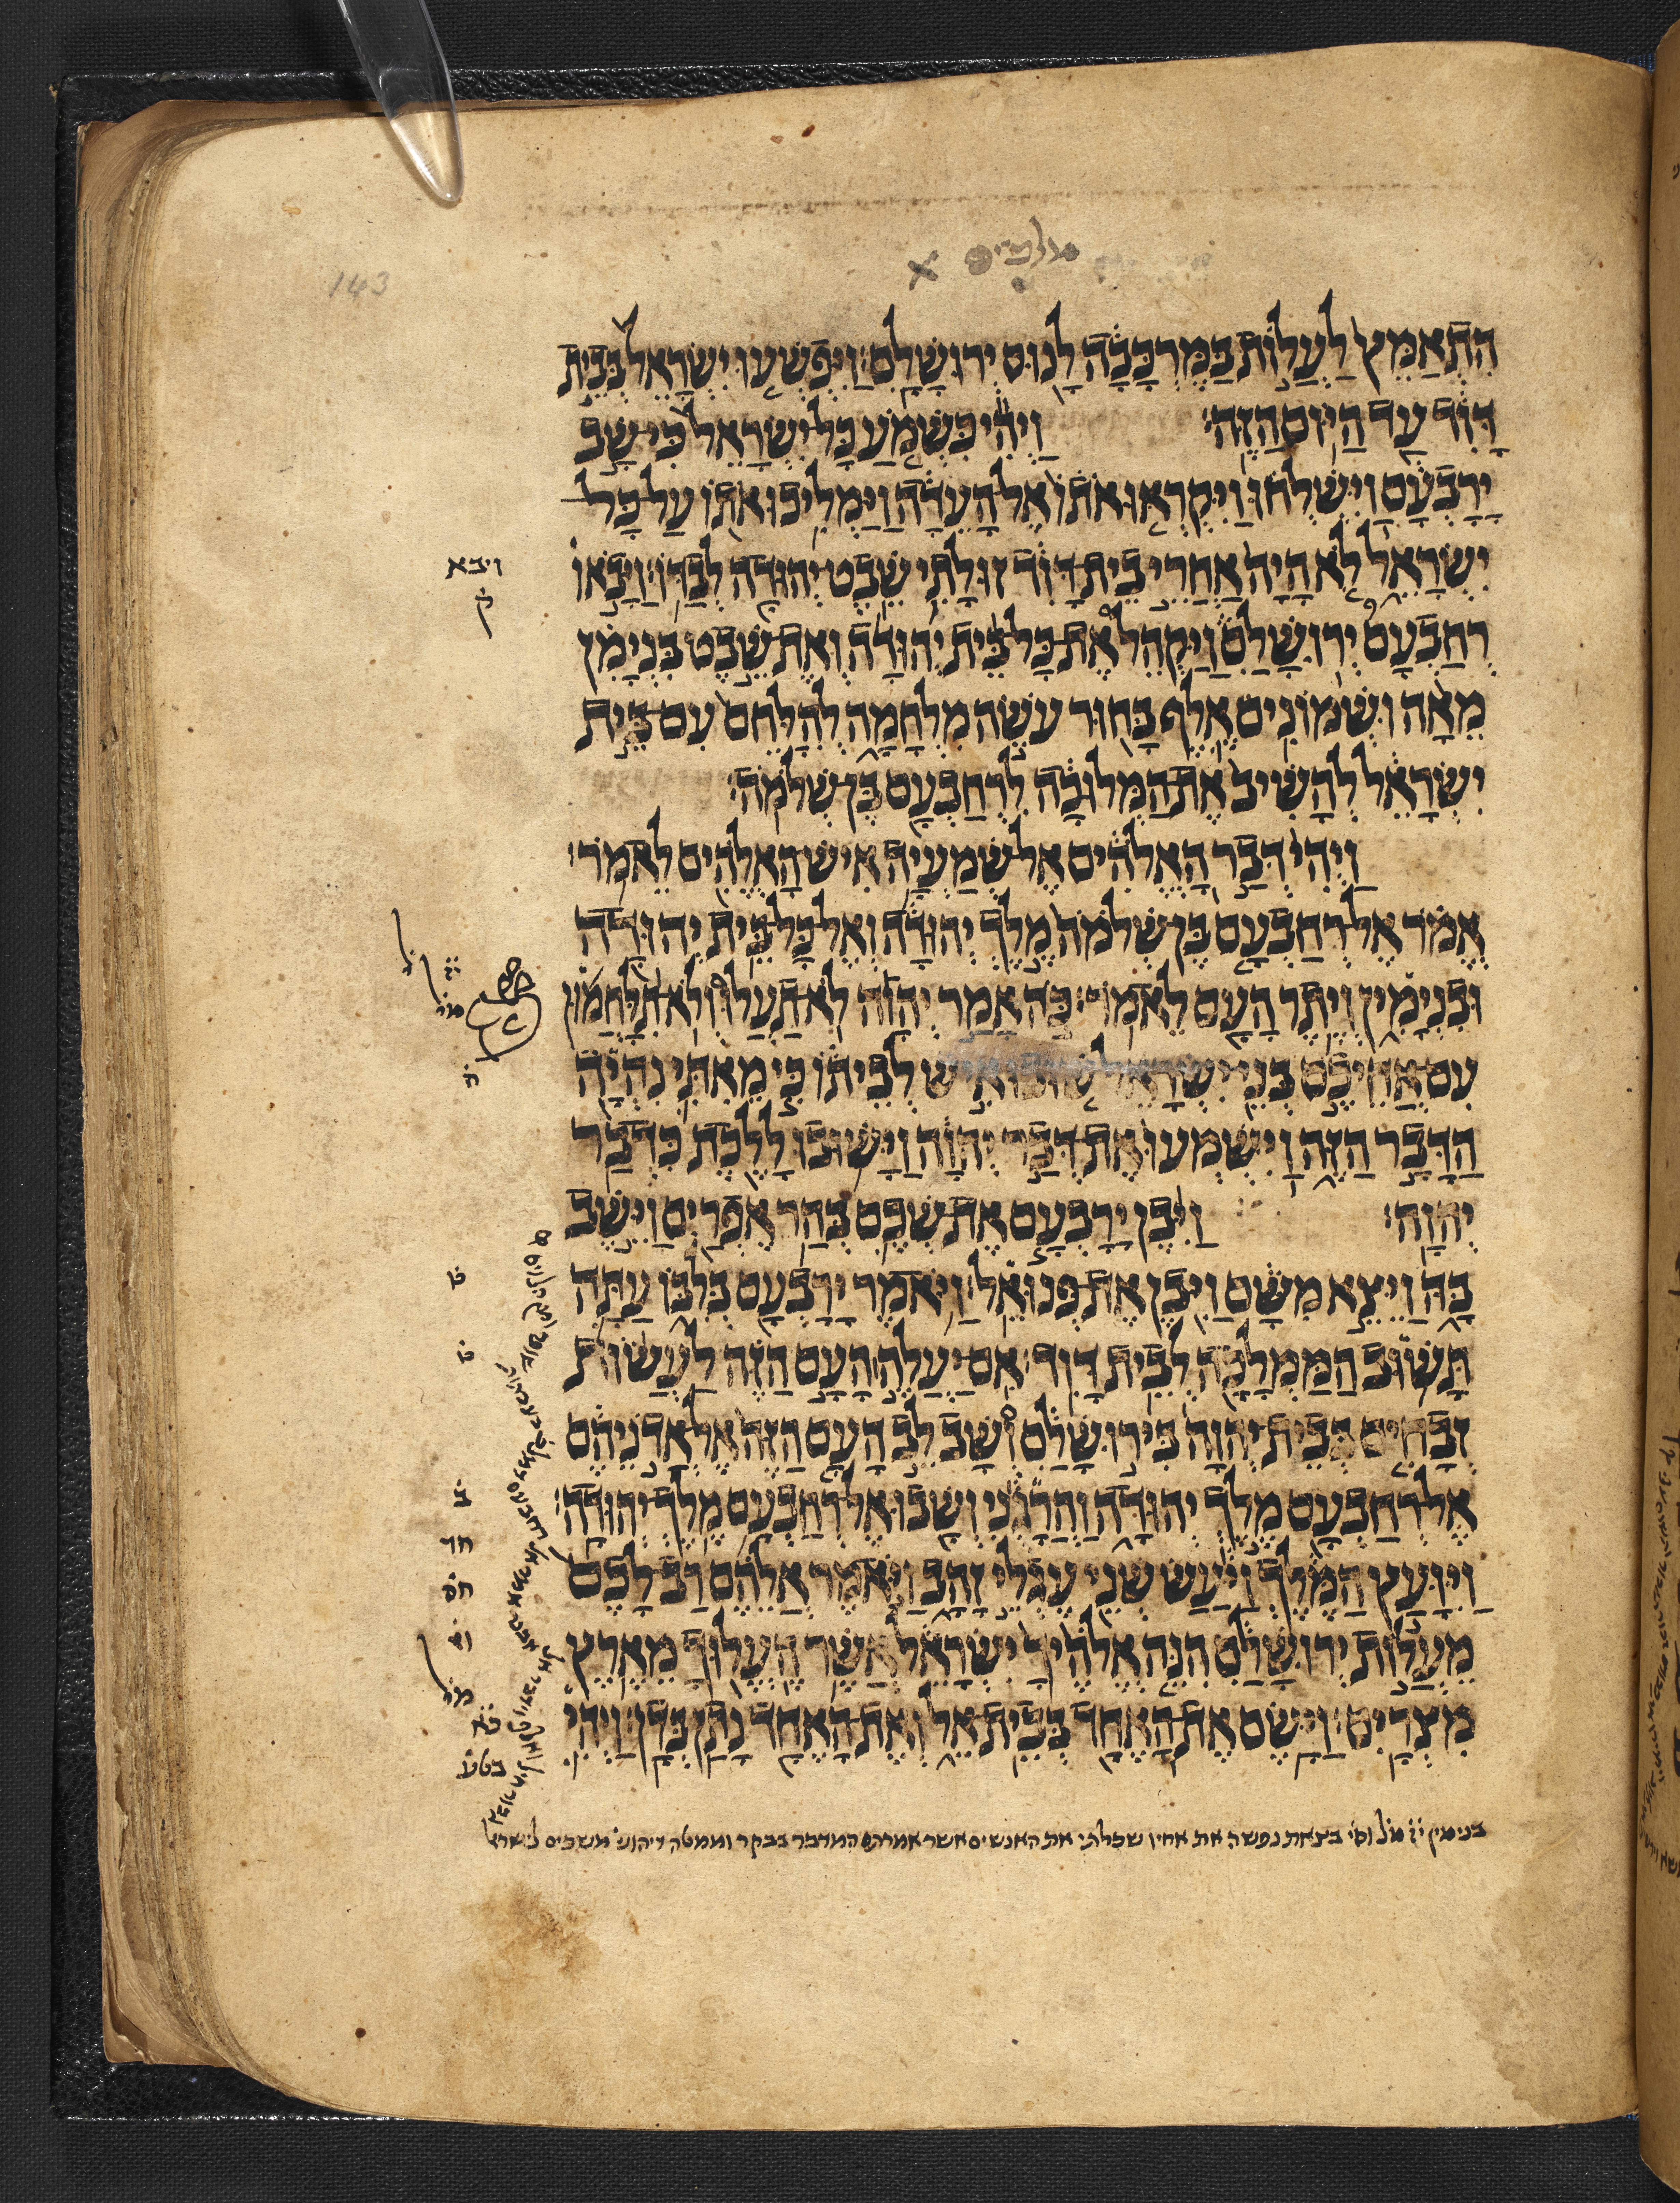 מלכים
143
הִתְאַמֵּץ לַעֲלוֹת בַּמֶּרְכָּבָה לָנוּס יְרוּשָׁלִָם׃ וַיִּפְשְׁעוּ יִשְׂרָאֵל בְּבֵית
דָּוִד עַד הַיּוֹם הַזֶּה׃ וַיְהִי כִּשְׁמֹעַ כָּל יִשְׂרָאֵל כִּי שָׁב
יָרָבְעָם וַיִּשְׁלְחוּ וַיִּקְרְאוּ אֹתוֹ אֶל הָעֵדָה וַיַּמְלִיכוּ אֹתוֹ עַל כָּל
יִשְׂרָאֵל לֹא הָיָה אַחֲרֵי בֵית דָּוִד זוּלָתִי שֵׁבֶט יְהוּדָה לְבַדּוֹ׃ וַיָּבֹאוּ
ויבא
ק
רְחַבְעָם יְרוּשָׁלִַם וַיַּקְהֵל אֶת כָּל בֵּית יְהוּדָה וְאֶת שֵׁבֶט בִּנְיָמִן
מֵאָה וּשְׁמוֹנִים אֶלֶף בָּחוּר עֹשֵׂה מִלְחָמָה לְהִלָּחֵם עִם בֵּית
יִשְׂרָאֵל לְהָשִׁיב אֶת הַמְּלוּכָה לִרְחַבְעָם בֶּן שְׁלֹמֹה׃
וַיְהִי דְּבַר הָאֱלֹהִים אֶל שְׁמַעְיָה אִישׁ הָאֱלֹהִים לֵאמֹר׃
אֱמֹר אֶל רְחַבְעָם בֶּן שְׁלֹמֹה מֶלֶךְ יְהוּדָה וְאֶל כָּל בֵּית יְהוּדָה
וּבִנְיָמִין וְיֶתֶר הָעָם לֵאמֹר׃ כֹּה אָמַר יְהוָה לֹא תַעֲלוּ וְלֹא תִלָּחֲמוּן
עִם אֲחֵיכֶם בְּנֵי יִשְׂרָאֵל שׁוּבוּ אִישׁ לְבֵיתוֹ כִּי מֵאִתִּי נִהְיָה
הַדָּבָר הַזֶּה וַיִּשְׁמְעוּ אֶת דְּבַר יְהוָה וַיָּשׁוּבוּ לָלֶכֶת כִּדְבַר
יְהוָה׃ וַיִּבֶן יָרָבְעָם אֶת שְׁכֶם בְּהַר אֶפְרַיִם וַיֵּשֶׁב
בָּהּ וַיֵּצֵא מִשָּׁם וַיִּבֶן אֶת פְּנוּאֵל׃ וַיֹּאמֶר יָרָבְעָם בְּלִבּוֹ עַתָּה
תָּשׁוּב הַמַּמְלָכָה לְבֵית דָּוִד׃ אִם יַעֲלֶה הָעָם הַזֶּה לַעֲשׂוֹת
זְבָחִים בְּבֵית יְהוָה בִּירוּשָׁלִַם וְשָׁב לֵב הָעָם הַזֶּה אֶל אֲדֹנֵיהֶם
אֶל רְחַבְעָם מֶלֶךְ יְהוּדָה וַהֲרָגֻנִי וְשָׁבוּ אֶל רְחַבְעָם מֶלֶךְ יְהוּדָה׃
ב
חד
וַיִּוָּעַץ הַמֶּלֶךְ וַיַּעַשׂ שְׁנֵי עֶגְלֵי זָהָב וַיֹּאמֶר אֲלֵהֶם רַב לָכֶם
חס
מֵעֲלוֹת יְרוּשָׁלִַם הִנֵּה אֱלֹהֶיךָ יִשְׂרָאֵל אֲשֶׁר הֶעֱלוּךָ מֵאֶרֶץ
מִצְרָיִם׃ וַיָּשֶׂם אֶת הָאֶחָד בְּבֵית אֵל וְאֶת הָאֶחָד נָתַן בְּדָן׃ וַיְהִי
בטע
בצאת נפשה את אחיו שכלתי את האנשים אשר אמרתם המדבר בבקר וממטה